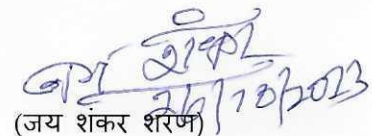 जय शंकर
26/10/2013
(जय शंकर शरण)